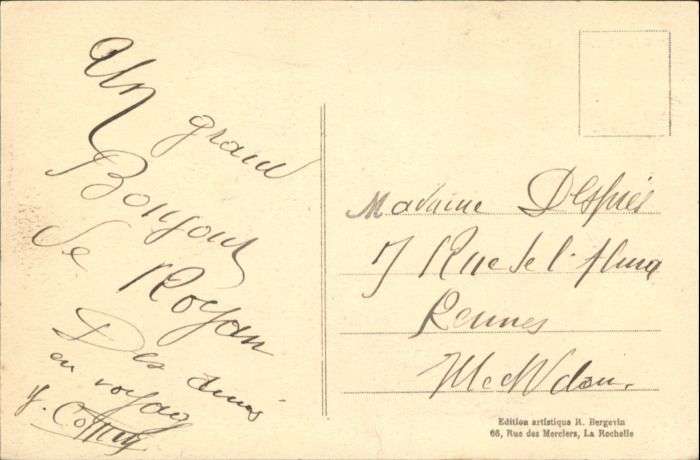 Un grand
Bonjour
de Royan
Des amis
en voyage
Madame Desprès
7 Rue de l'Alma
Rennes
Edition artistique R. Bergevin
66, Rue des Merciers, La Rochelle